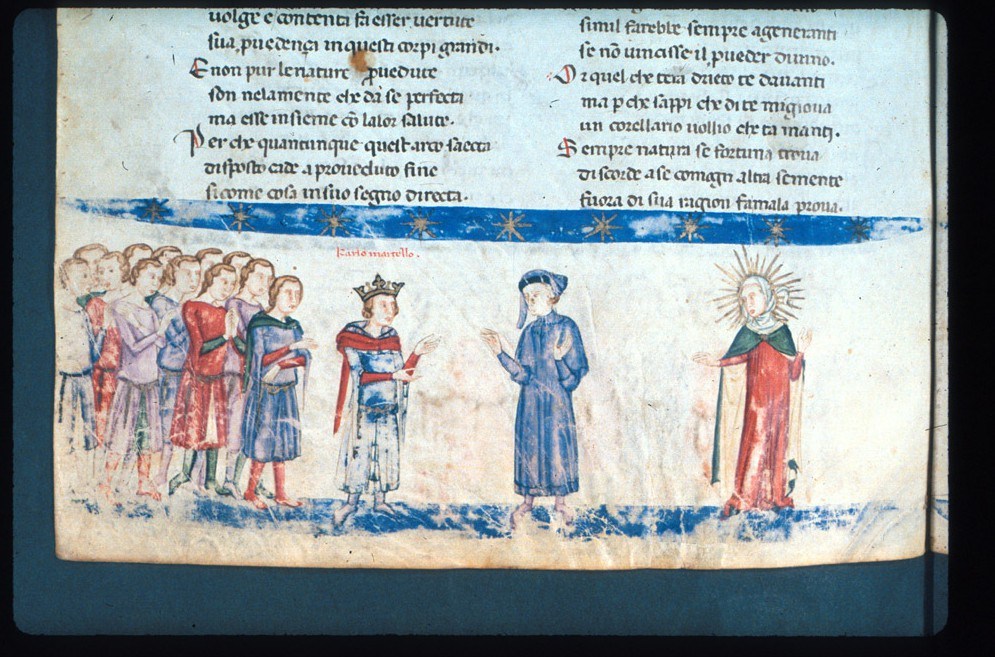 volge e contenta fa esser vertute
sua puedença in questi corpi grandi.
E non pur le nature puedute
son nela mente che da se perfecta
ma esse insieme cō lalor salute.
Per che quantunque quest arco saecta
disposto cade a proueduto fine
si come cosa in suo segno directa.
simil farebbe sempre a generanti
se nō vincisse il proueder diuino.
Or quel che tera drieto te dauanti
ma p che sappi che di te mi gioua
un corellario uollio che ta manti.
Sempre natura se fortuna troua
discorde a se com ogn altra semente
fuora di sua ragion fa mala proua.
karlo martello.